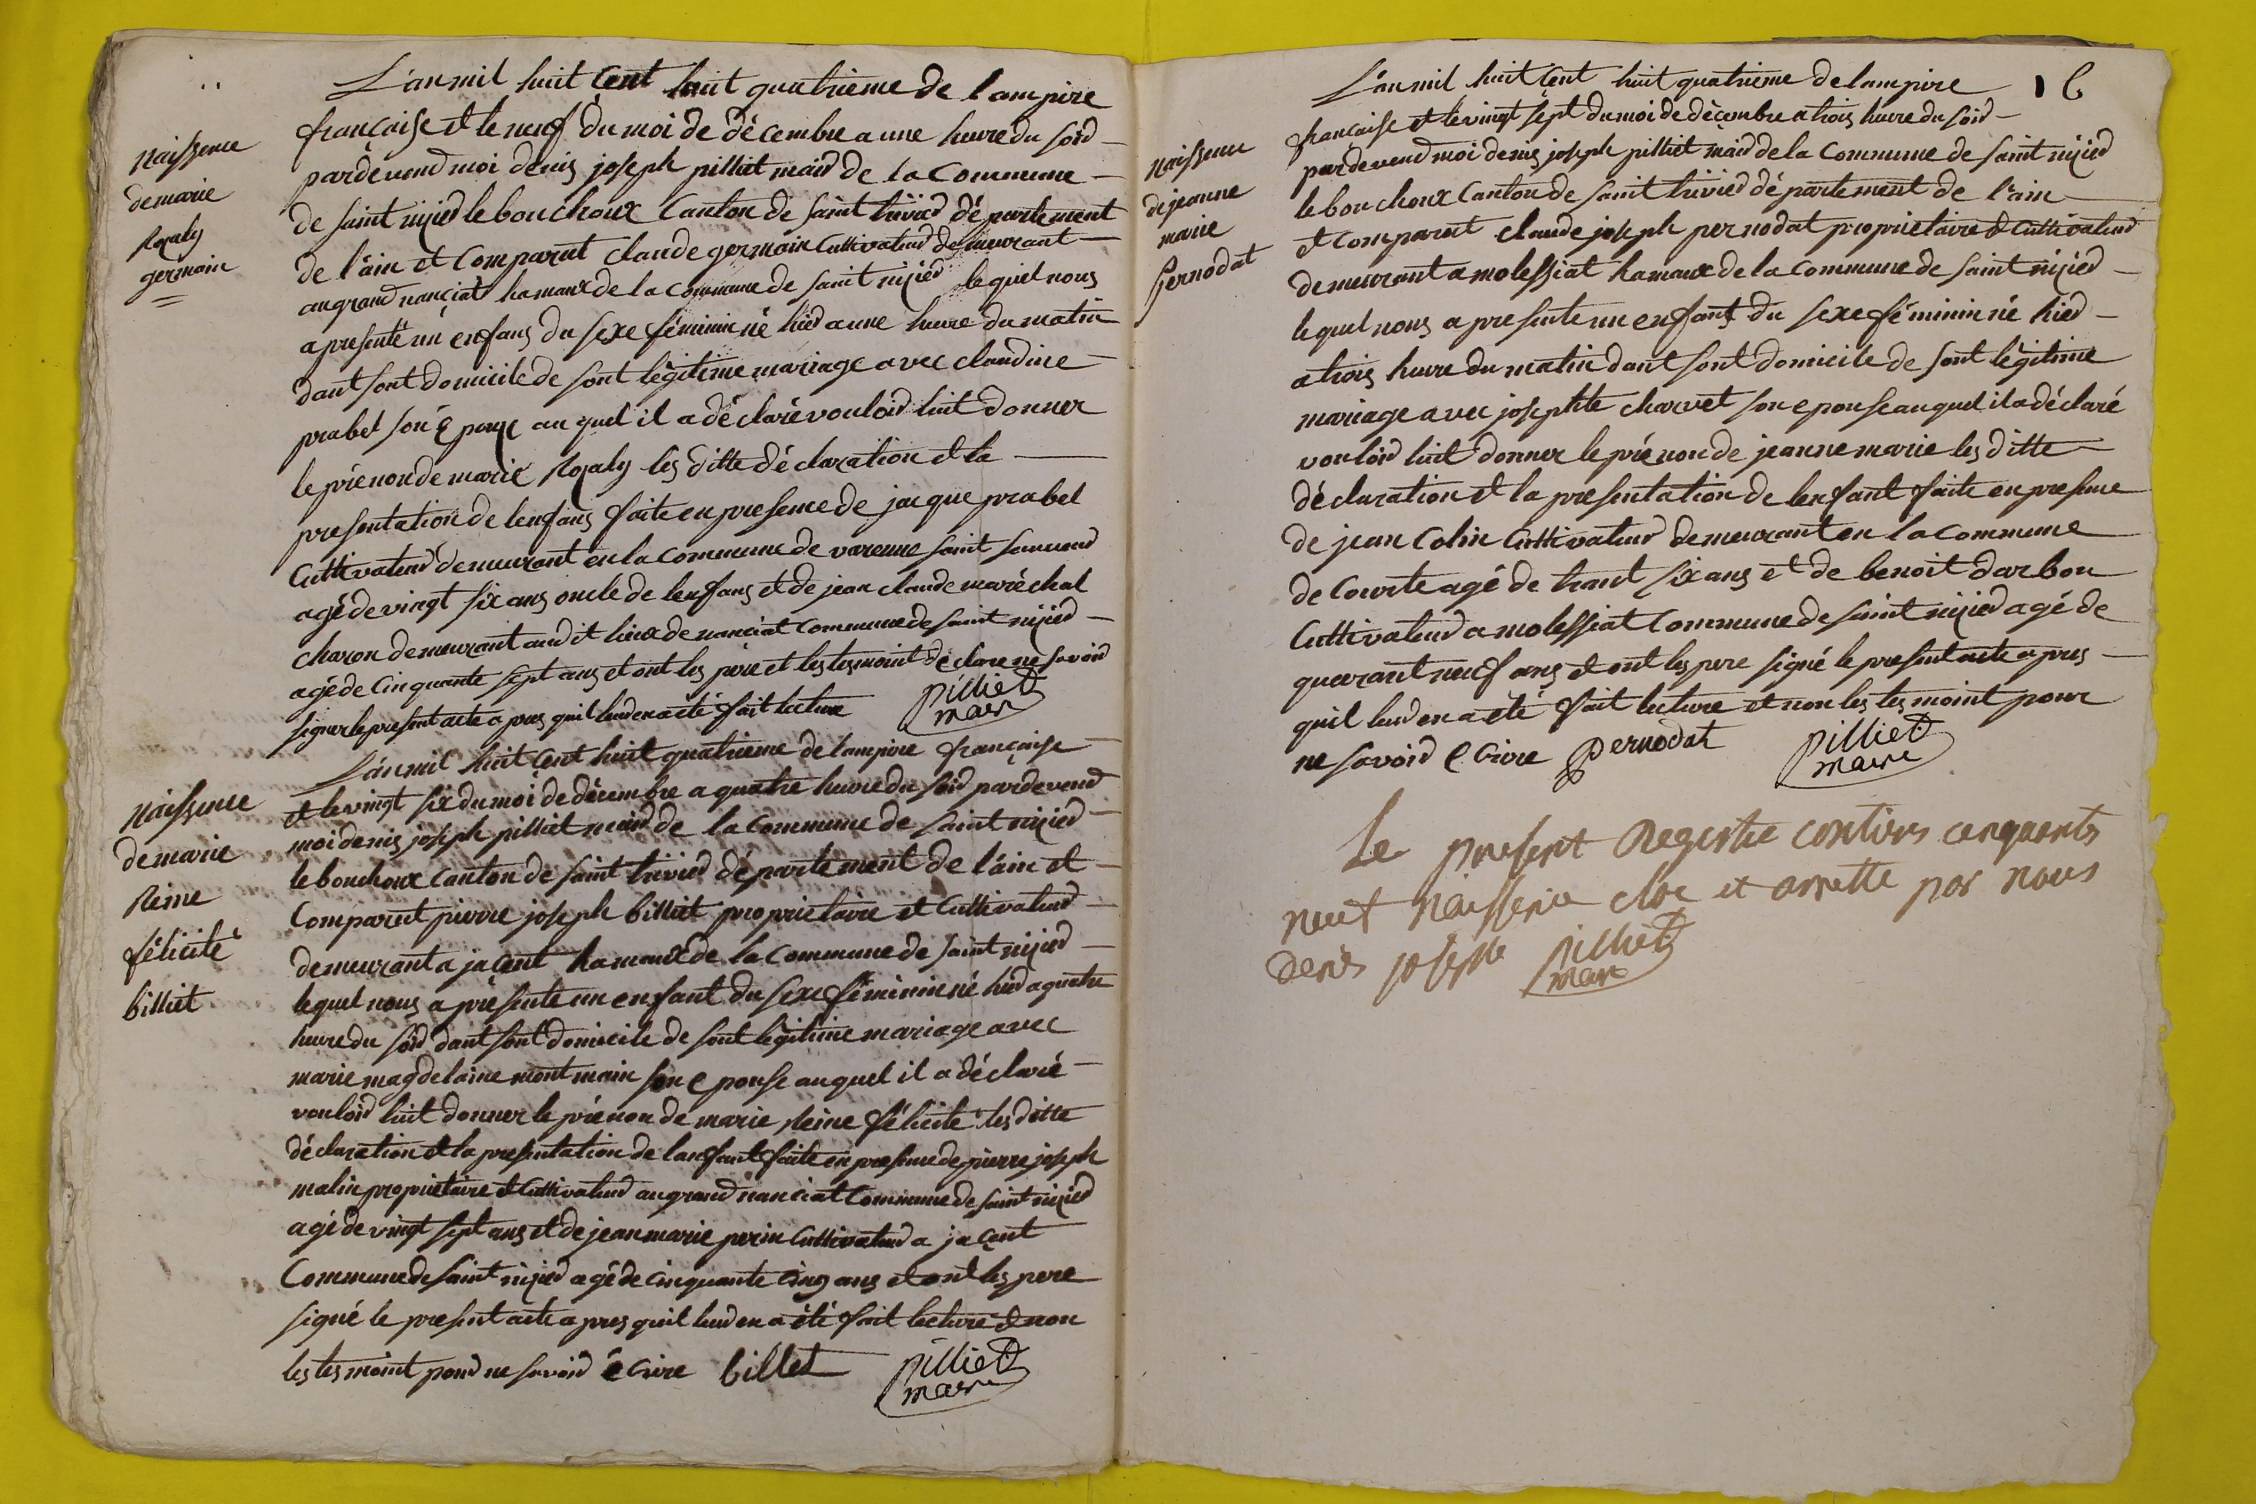 Naissence
de marie
Rozaly
germain
L'an mil huit cent huit quatrieme de l'ampire
française et le neuf du moi de décembre a une heure du soir
pardevend moi denis joseph pilliet mair de la Commune
de saint nizied le bouchoux Canton de saint trivied département
de l'ain et Comparut claude germain Cultivateur demeurant
au grand nanciat hamaux de la Commune de saint nizied lequel nous
a presenté un enfans du sexe féminin né hied a une heure du matin
dant sont domicile de sont légitime mariage avec claudine
prabel son épouse au quel il a déclaré vouloir luit donner
le prénon de marie Rozaly les ditte déclaration et la
presentation de lenfans faite en presence de jacque prabel
Cultivateur demeurant en la Commune de varenne saint sauveur
agé de vingt six ans oncle de lenfans et de jean claude maréchal
charon demeurant audit lieux de nanciat Commune de saint nizied
agé de Cinquante sept ans et ont les père et les tesmoint déclare ne savoir
signer le present acte apres quil leur en a été fait lecture
pilliet
mair
Naissence
de marie
Reine
félicité
billiet
L'an mil huit cent huit quatrieme de l'ampire française
et le vingt six du moi de décembre a quatre heure du soir pardevend
moi denis joseph pilliet mair de la Commune de saint nizied
le bouchoux Canton de saint trivied département de l'ain et
Comparut pierre joseph billiet proprietaire et Cultivateur
demeurant a jacent hamaux de la Commune de saint nizied
lequel nous a presenté un enfant du sexe féminin né hied a quatre
heure du soir dant sont domicile de sont légitime mariage avec
marie magdelaine montmain son epouse auquel il a déclaré
vouloir luit donner le prénon de marie Reine félicité les ditte
déclaration et la presentation de lanfant faite en presence de pierre joseph
malin proprietaire et Cultivateur au grand nanciat Commune de saint nizied
agé de vingt sept ans et de jean marie perin Cultivateur a jacent
Commune de saint nizied agé de cinquante cinq ans et ont les pere
signé le present acte apres quil leur en a été fait lecture et non
les tesmoint pour ne savoir écrire billet
pilliet
maire
Naissence
de jeanne
marie
Pernodat
L'an mil huit cent huit quatrieme de lampire
française et le vingt sept du moi de décembre a trois heure du soir
pardevend moi denis joseph pilliet mair de la Commune de saint nizied
le bouchoux Canton de saint trivied département de l'ain
et Comparut claude joseph pernodat proprietaire et Cultivateur
demeurant a molessiat hamaux de la Commune de saint nizied
lequel nous a presente un enfant du sexe féminin né hied
a trois heure du matin dant sont domicile de sont légitime
mariage avec josephte charvet son epouse auquel il a déclaré
vouloir luit donner le prénon de jeanne marie les ditte
déclaration et la presentation de lenfant faite en presence
de jean Colin Cultivateur demeurant en la Commune
de Courte agé de trant six ans et de benoit darbon
Cultivateur a molessiat Commune de saint nizied agé de
quarant neuf ans et ont les pere signé le present acte apres
quil leur en a été fait lecture et non les tesmoint pour
ne savoir écrire Pernodat
pilliet
maire
Le present Registre contiens cenquente
neuf naissence cloc et arrette par nous
denis josephe pilliet
maire